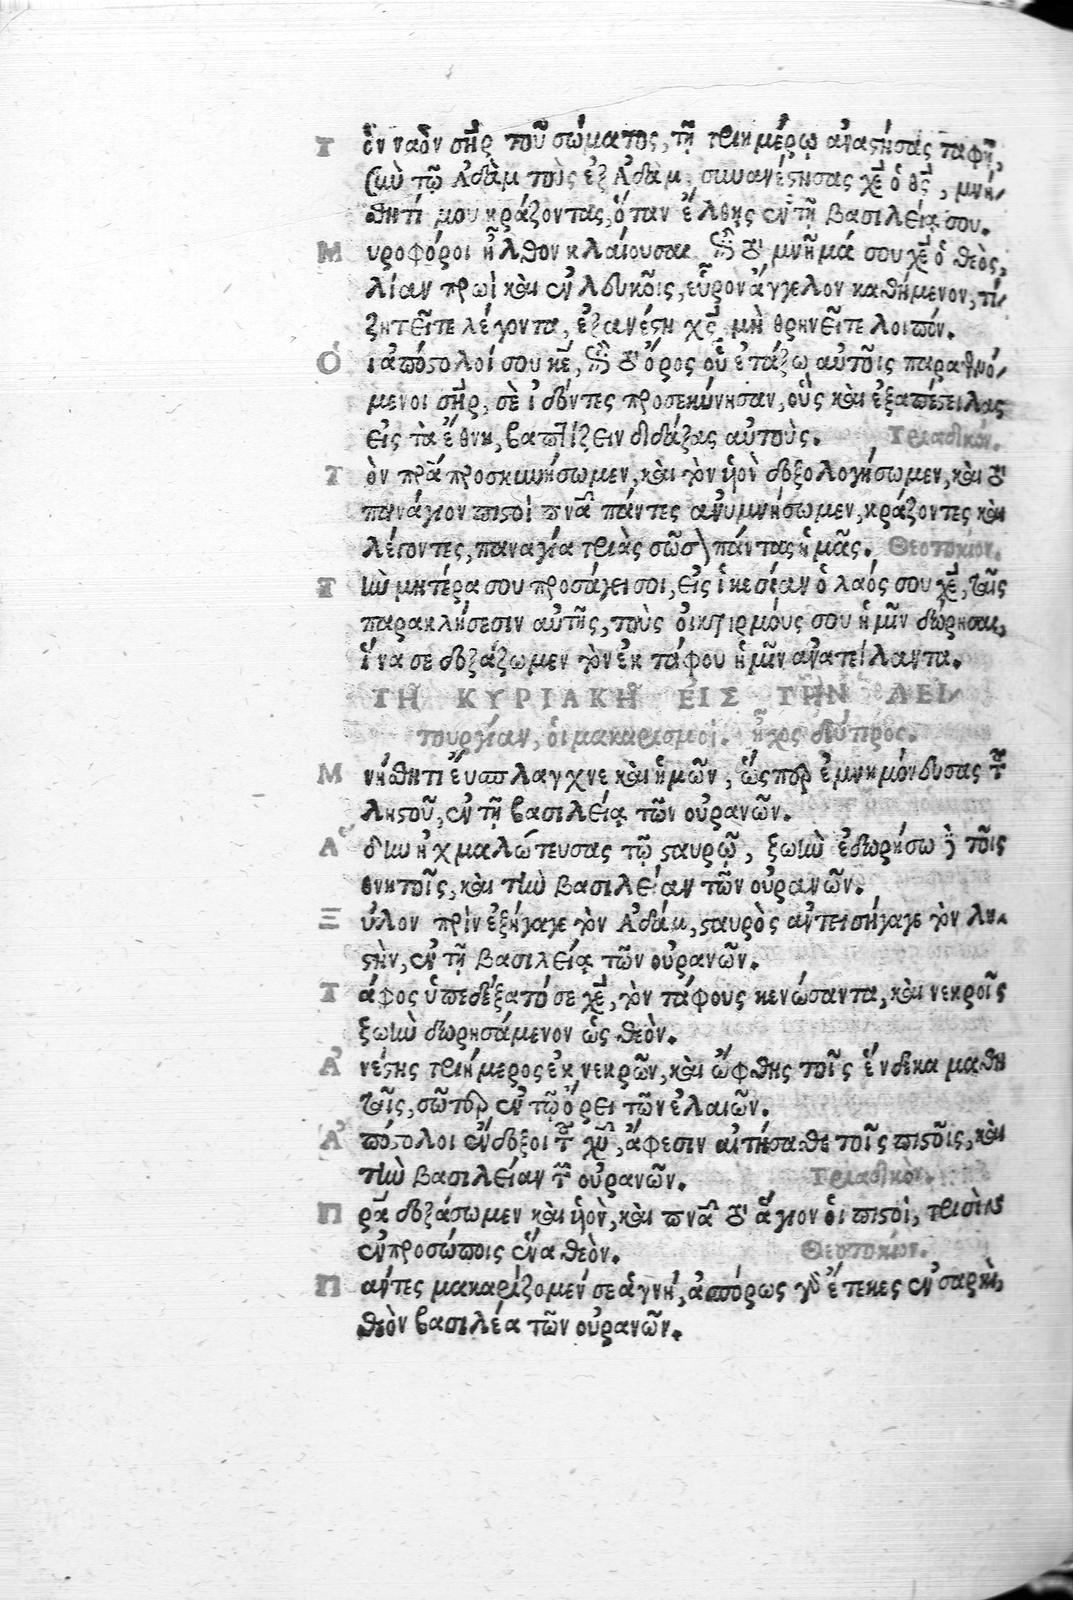 Τὸν ναὸν σῆρ τοῦ σώματος, τῇ τριημέρῳ ἀναστήσας ταφῇ,
σὺν τῷ Ἀδὰμ τοὺς ἐξ Ἀδὰμ, συνανέστησας χε ὁ θς, μνή-
σθητί μου κράζοντας, ὅταν ἔλθῃς ἐν τῇ βασιλείᾳ σου.
Μυροφόροι ἦλθον κλαίουσαι ἐπὶ τὸ μνῆμά σου χε ὁ θεὸς,
λίαν πρωῒ καὶ ἐν λευκοῖς, εὗρον ἄγγελον καθήμενον, τί
ζητεῖτε λέγοντα, ἐξανέστη χς, μὴ θρηνεῖτε λοιπόν.
Οἱ ἀπόστολοί σου κε, ἐπὶ τὸ ὄρος οὗ ἐτάξω αὐτοῖς παραγενό-
μενοι σῆρ, σὲ ἰδόντες προσεκύνησαν, οὓς καὶ ἐξαπέστειλας
εἰς τὰ ἔθνη, βαπτίζειν διδάξας αὐτοὺς. Τριαδικόν.
Τὸν πρα προσκυνήσωμεν, καὶ τὸν υἱὸν δοξολογήσωμεν, καὶ τὸ
πανάγιον πιστοὶ πνα πάντες ἀνυμνήσωμεν, κράζοντες καὶ
λέγοντες, παναγία τριὰς σῶσον πάντας ἡμᾶς. Θεοτοκίον.
Τὴν μητέρα σου προσάγει σοι, εἰς ἱκεσίαν ὁ λαός σου χε, ταῖς
παρακλήσεσιν αὐτῆς, τοὺς οἰκτιρμούς σου ἡμῖν δώρησαι,
ἵνα σε δοξάζωμεν τὸν ἐκ τάφου ἡμῖν ἀνατείλαντα.
ΤΗ ΚΥΡΙΑΚΗ ΕΙΣ ΤΗΝ ΛΕΙ-
τουργίαν, οἱ μακαρισμοί. ἦχος δεύτερος.
Μνήσθητι εὔσπλαγχνε καὶ ἡμῶν, ὥσπερ ἐμνημόνευσας τοῦ
ληστοῦ, ἐν τῇ βασιλείᾳ τῶν οὐρανῶν.
Ἅδην ᾐχμαλώτευσας τῷ σταυρῷ, ζωὴν ἐδωρήσω δὲ τοῖς
θνητοῖς, καὶ τὴν βασιλείαν τῶν οὐρανῶν.
Ξύλον πρὶν ἐξήγαγε τὸν Ἀδάμ, σταυρὸς ἀντεισήγαγε τὸν λη-
στὴν, ἐν τῇ βασιλείᾳ τῶν οὐρανῶν.
Τάφος ὑπεδέξατό σε χε, τὸν τάφους κενώσαντα, καὶ νεκροῖς
ζωὴν δωρησάμενον ὡς θεὸν.
Ἀνέστης τριήμερος ἐκ νεκρῶν, καὶ ὤφθης τοῖς ἕνδεκα μαθη
ταῖς, σῶτερ ἐν τῷ ὄρει τῶν ἐλαιῶν.
Ἀπόστολοι ἔνδοξοι τοῦ χυ, ἄφεσιν αἰτήσασθε τοῖς πιστοῖς, καὶ
τὴν βασιλείαν τῶν οὐρανῶν. Τριαδικὸν.
Πρα δοξάσωμεν καὶ υἱὸν, καὶ πνα τὸ ἅγιον οἱ πιστοὶ, τρισὶν
ἐν προσώποις ἕνα θεὸν. Θεοτοκίον.
Πάντες μακαρίζομέν σε ἁγνή, ἀσπόρως γὰρ ἔτεκες ἐν σαρκὶ,
θεὸν βασιλέα τῶν οὐρανῶν.